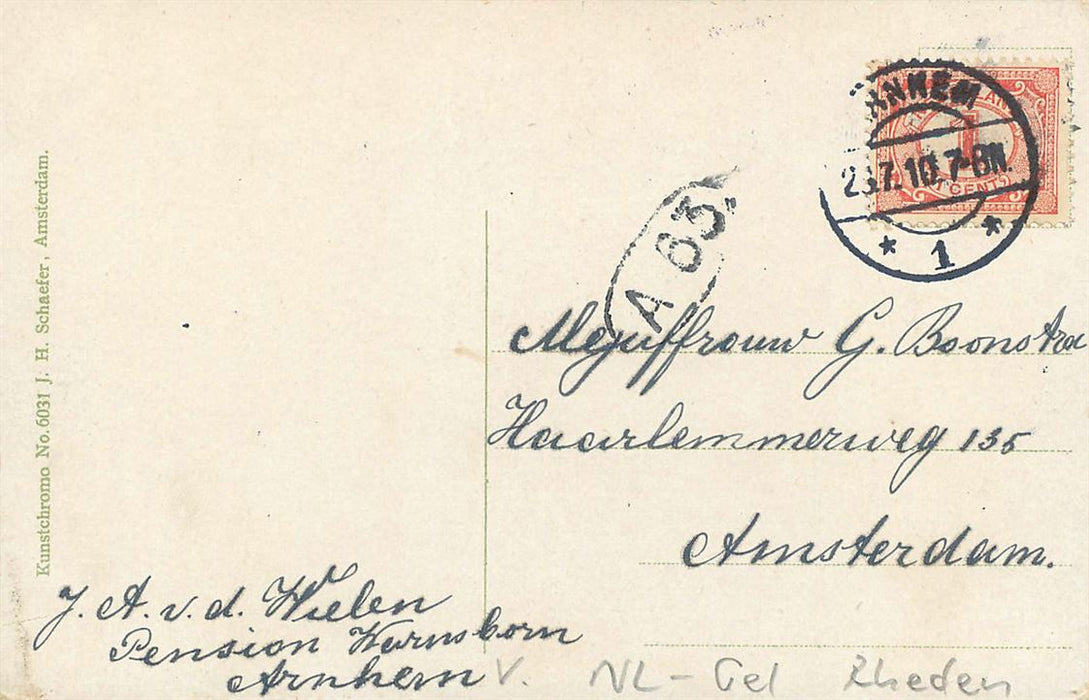 Kunstchromo No. 6031 J. H. Schaefer, Amsterdam.
ARNHEM
7.10.7-8N.
1
1 CENT
A 63.
Mejuffrouw G. Boonstra
Haarlemmerweg 135
Amsterdam.
J. A. v. d. Wielen
Pension Warnsborn
Arnhem
V. NL - Gel Rheden